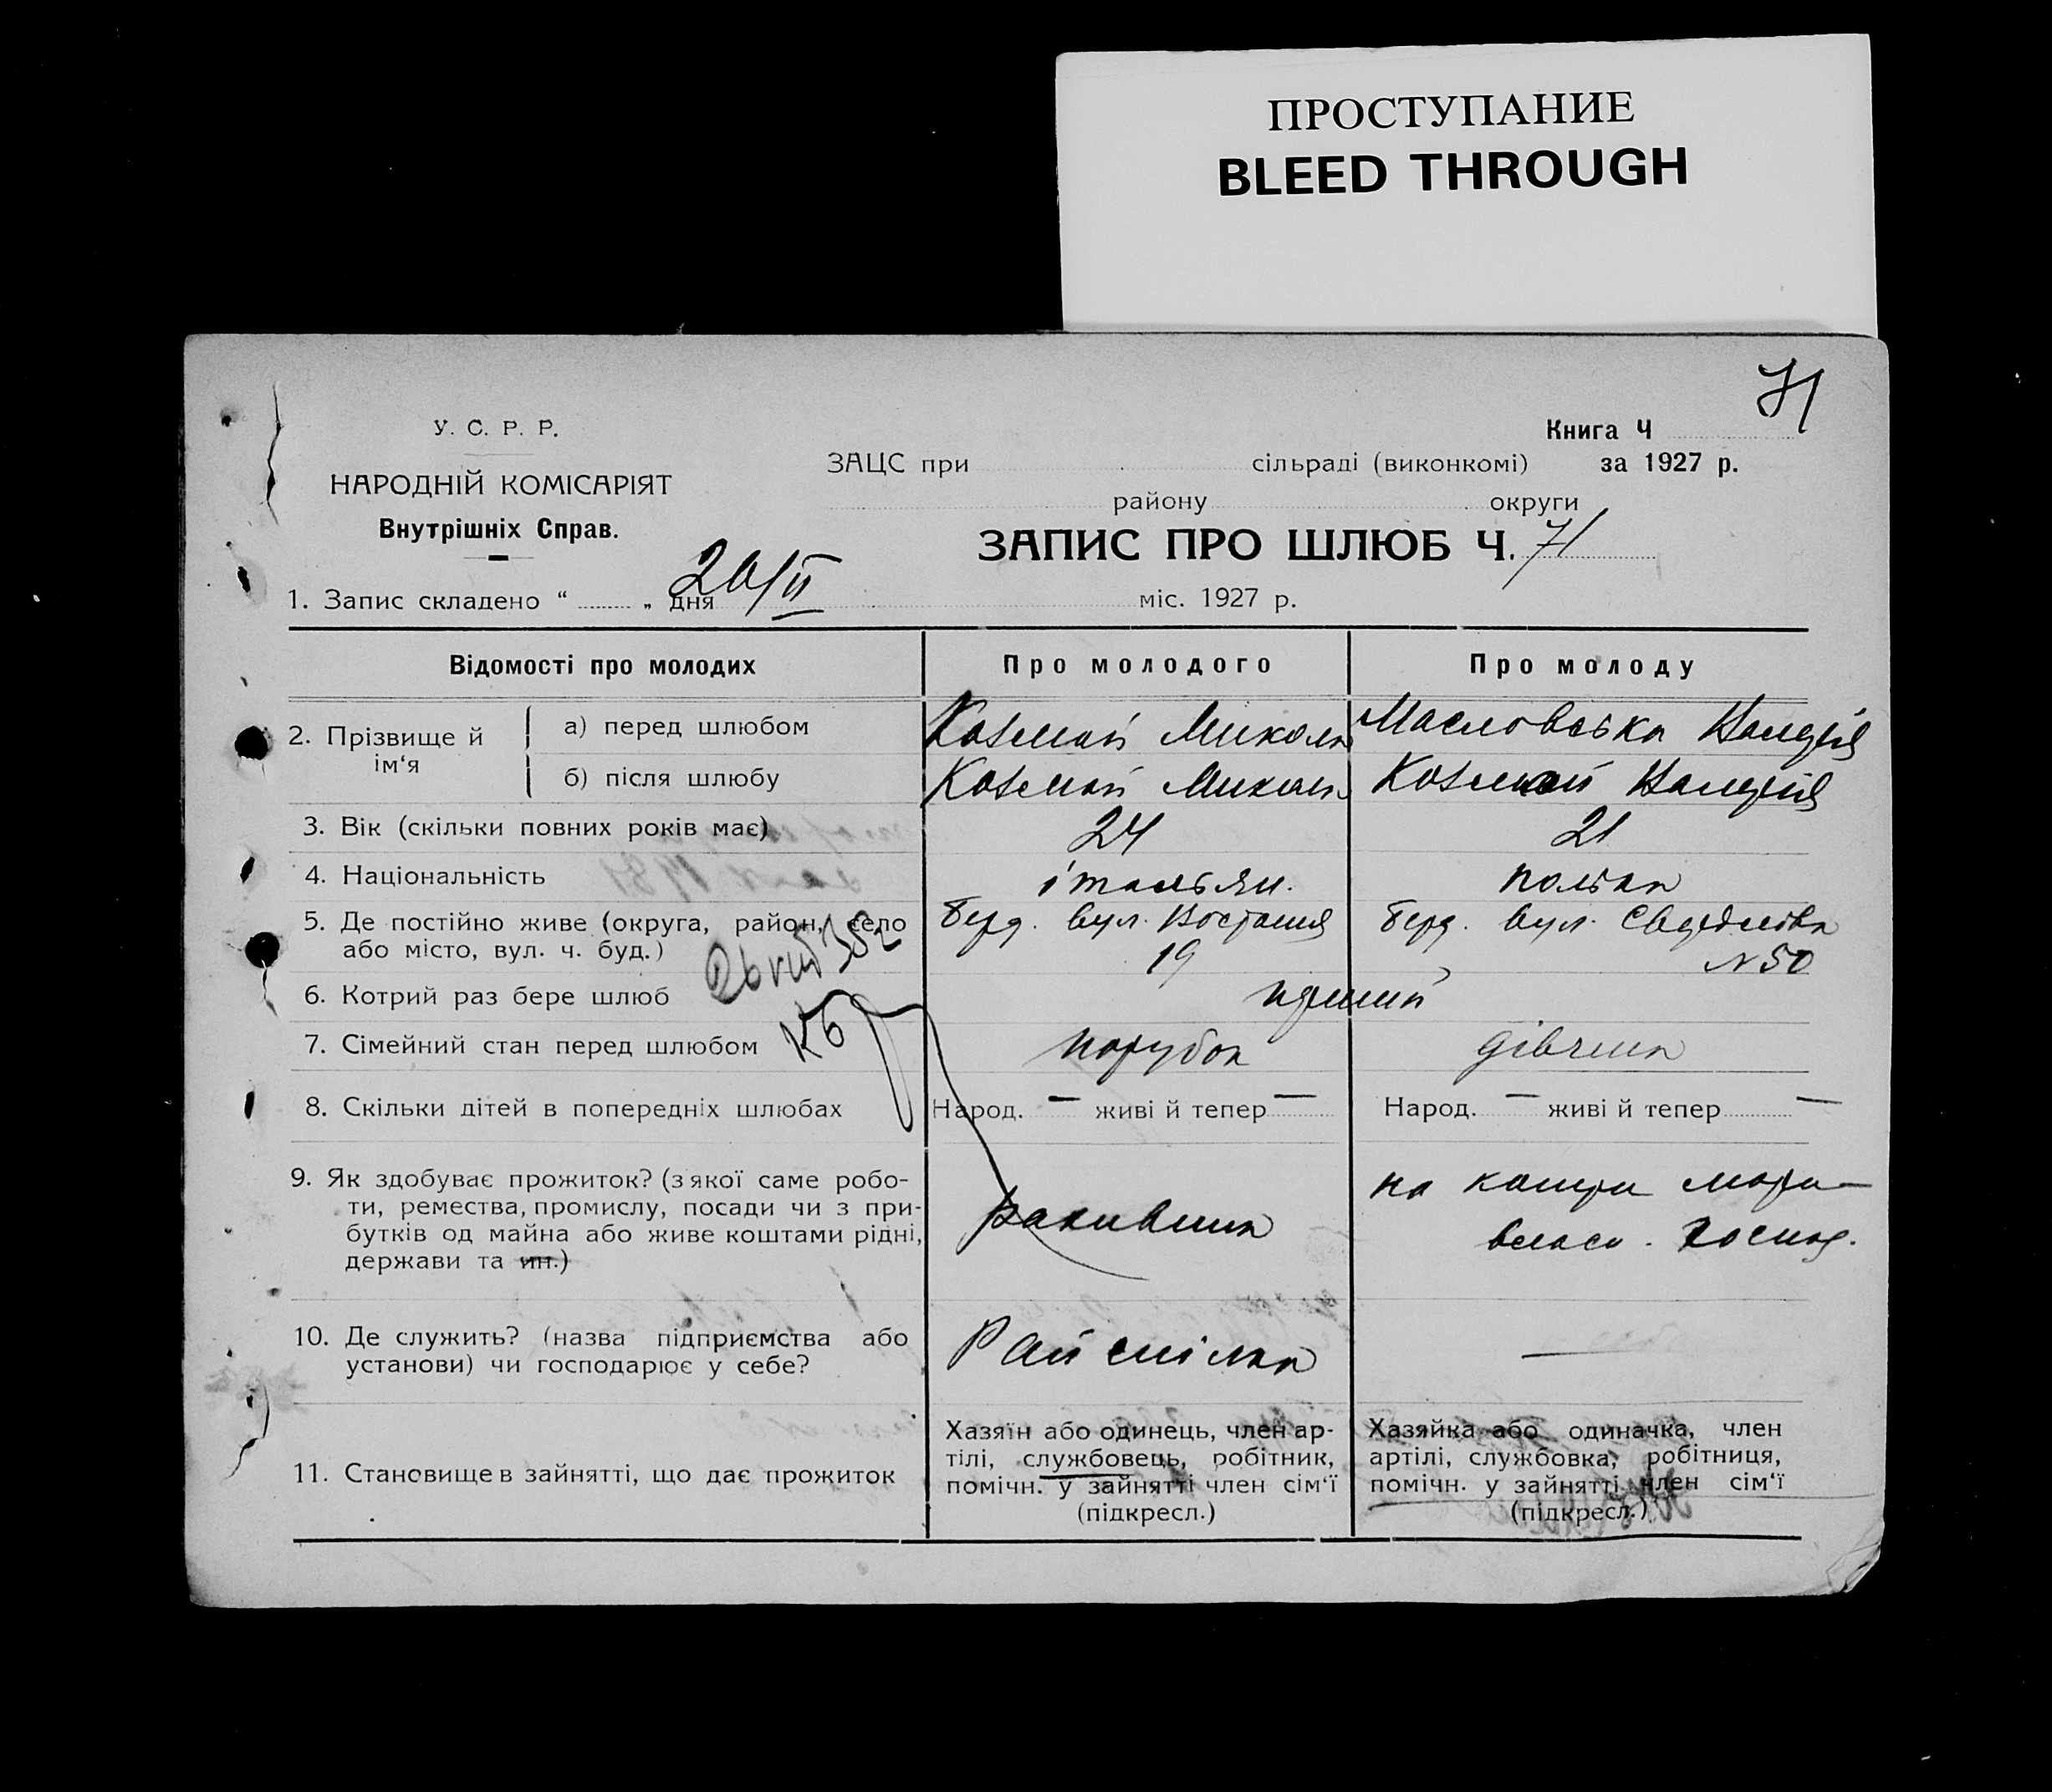 ПРОСТУПАНИЕ
BLEED THROUGH
71
У. С. Р. Р.
НАРОДНІЙ КОМІСАРІЯТ
Внутрішніх Справ.
Книга Ч
ЗАЦС при сільраді (виконкомі) за 1927 р.
району округи
ЗАПИС ПРО ШЛЮБ Ч. 71
1. Запис складено “ „ дня /II міс. 1927 р.
Відомості про молодих
Про молодого
Про молоду
2. Прізвище й ім‘я
а) перед шлюбом
Микола
Масловська Надія
б) після шлюбу
Микола
Надія
3. Вік (скільки повних років має)
24
21
4. Національність
італьян.
полька
5. Де постійно живе (округа, район, село
або місто, вул. ч. буд.)
Берд. вул.
19
Берд. вул.
N 50
6. Котрий раз бере шлюб
перший
7. Сімейний стан перед шлюбом
парубок
дівчина
8. Скільки дітей в попередніх шлюбах
Народ. — живі й тепер —
Народ. — живі й тепер —
9. Як здобуває прожиток? (з якої саме робо-
ти, ремества, промислу, посади чи з при-
бутків од майна або живе коштами рідні,
держави та ин.)
на
власн. господ.
10. Де служить? (назва підприємства або
установи) чи господарює у себе?
Райспілка
—
11. Становище в зайнятті, що дає прожиток
Хазяїн або одинець, член ар-
тілі, службовець, робітник,
помічн. у зайнятті член сім‘ї
(підкресл.)
Хазяйка або одиначка, член
артілі, службовка, робітниця,
помічн. у зайнятті член сім‘ї
(підкресл.)